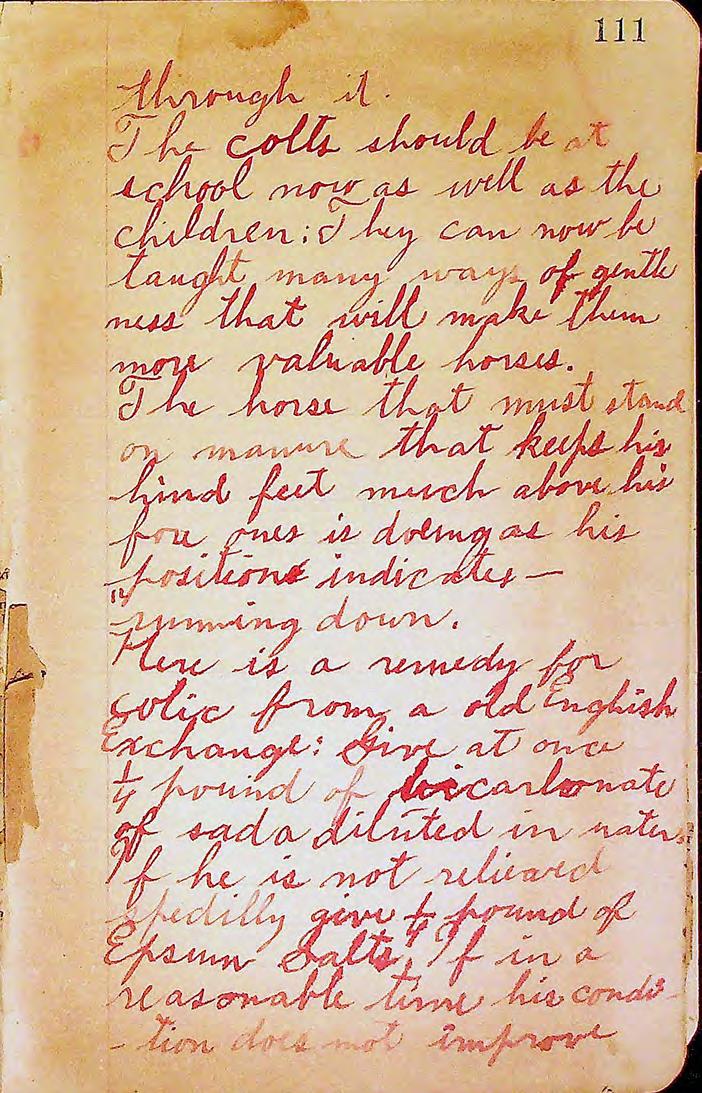 111
through it.
The colts should be at
school now as well as the
children: They can now be
taught many ways of gentle
ness that will make them
more valuable horses.
The horse that must stand
on manure that keeps his
hind feet much above his
fore ones is doeing as his
positions indicates —
running down.
Here is a remedy for
colic from a old English
Exchange: Give at once
1/4 pound of bicarbonate
of sada diluted in water.
If he is not relieved
spedilly give 1/4 pound of
Epsum Salts, If in a
reasonable time his condi-
-tion does not improve